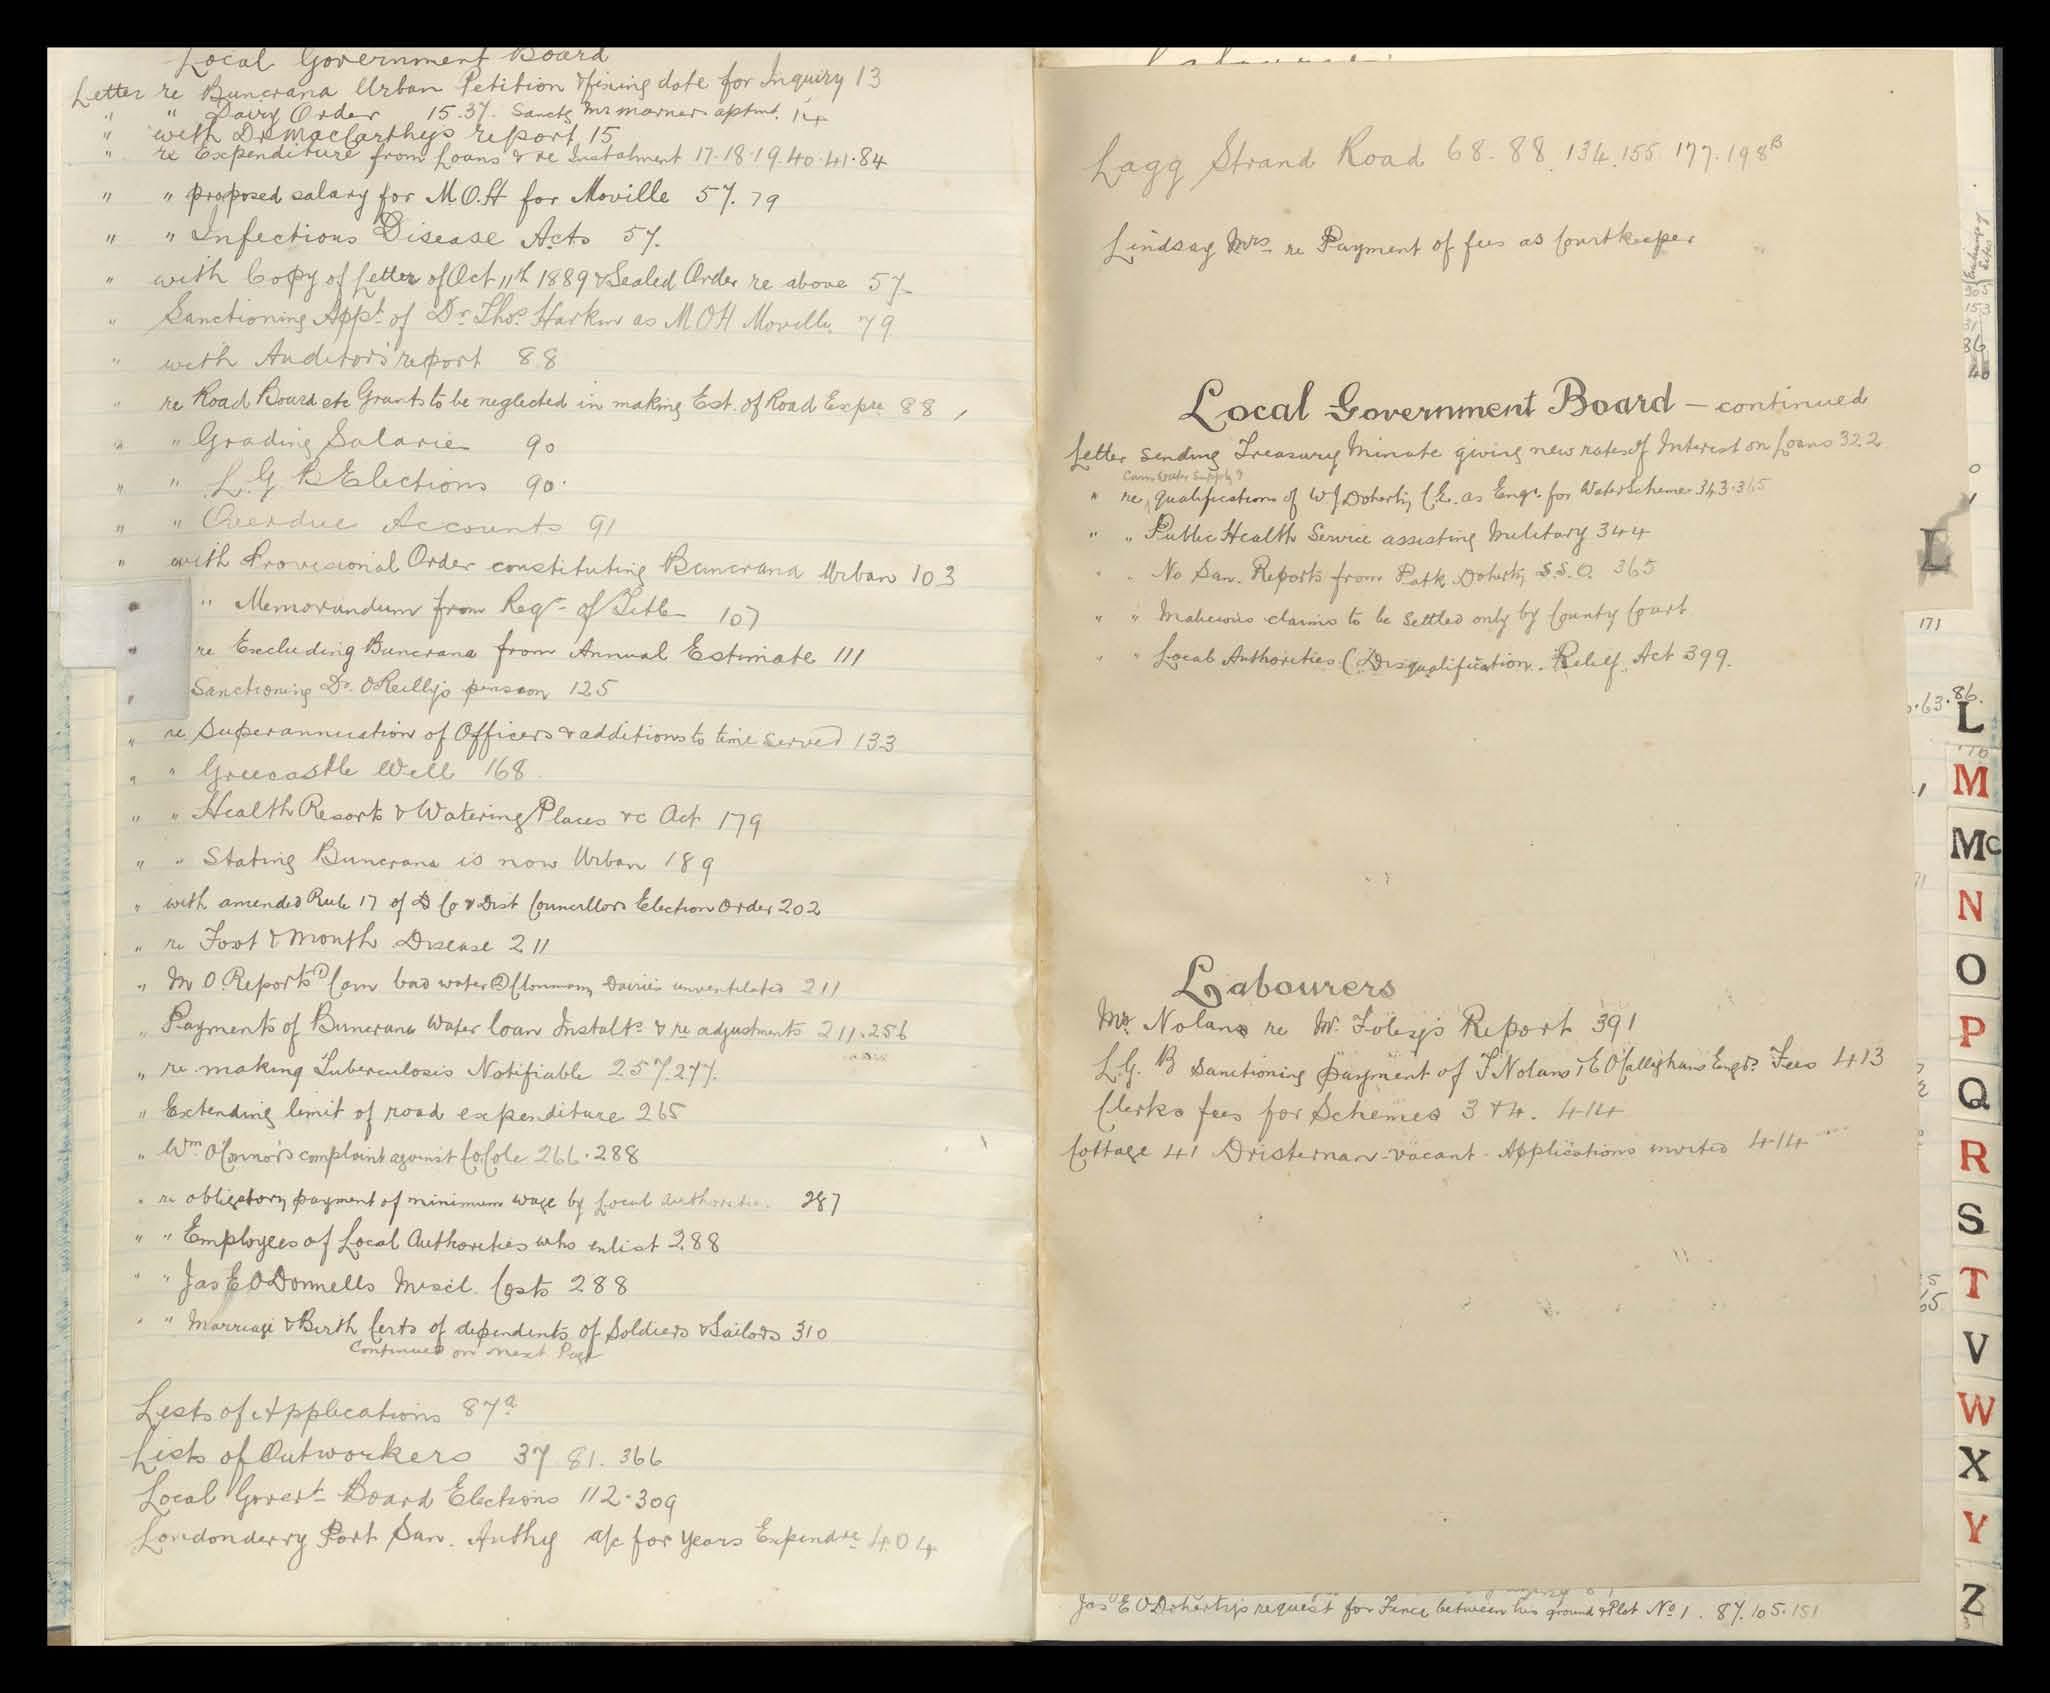 Local Government Board
Letter re Buncrana Urban Petition & fixing date for Inquiry 13
" " Dairy Order 15.37. Sanctg Mr Marners aptmt. 14
" with Dr MacCarthys report 15
" re Expenditure from Loans & re Instalment 17.18.19.40.41.84
" " proposed salary for M.O.H for Moville 57. 79
" " Infectious Disease Acts 57.
" with Copy of Letter of Oct 11th 1889 & Sealed Order re above 57
" Sanctioning Appt. of Dr Thos. Harkin as M O H Moville 79
" with Auditors' report 88
" re Road Board etc Grants to be neglected in making Est. of Road Expre 88
" " Grading Salaries 90
" " L.G.B Elections 90.
" " Overdue Accounts 91
" with Provisional Order constituting Buncrana Urban 103
" " Memorandum from Regr of Title 107
" re Excluding Buncrana from Annual Estimate 111
" Sanctioning Dr. O'Reillys pension 125
" re Superannuation of Officers & additions to time served 133
" " Greecastle Well 168
" " Health Resorts & Watering Places &c Act 179
" " Stating Buncrana is now Urban 189
" with amended Rule 17 of Co & Dist Councillors Election Order 202
" re Foot & Mouth Disease 211
" M O Reports (1) Carn bad water (2) Clonmany Dairies unventilated 211
" Payments of Buncrana Water loan Instalts & re adjustments 211.256
" re making Tuberculosis Notifiable 257.277.
" Extending limit of road expenditure 265
" Wm O'Connors complaint against Co Cole 266.288
" re obligatory payment of minimum wage by Local Authorities. 287
" " Employees of Local Authorities who enlist 288
" " Jas E O'Donnells Miscl. Costs 288
" " Marriage & Birth Certs of dependents of Soldiers & Sailors 310
Continued on next Page
Lists of Applications 87a
Lists of Outworkers 37 81. 366
Local Govert Board Elections 112.309
Londonderry Port San. Authy a/c for years Expendre 404
Lagg Strand Road 68. 88. 134. 155 177. 198B
Lindsay Mrs re Payment of fees as Courtkeeper
Local Government Board – continued
Letter sending Treasury Minute giving new rates of Interest on Loans 322
Carn Water Supply
" re qualifications of W J Doherty C.E. as Engr. for Water Scheme 343.365
" " Public Health Service assisting Military 344
" " No San. Reports from Patk Doherty S.S.O. 365
" " Malicious claims to be settled only by County Court
" " Local Authorities (Disqualification Relief Act 399.
L
Labourers
Mr. Nolans re Mr. Foleys Report 391
L.G. B Sanctioning payment of J Nolans & E O'Callighans Engrs. Fees 413
Clerks fees for Schemes 3 & 4. 414
Cottage 41 Dristernan vacant - Applications invited 414
Jas E O'Dohertys request for Fence between his ground & Plot No 1. 87.105.151
171
63.86.
L
M
Mc
N
O
P
Q
R
S
T
V
W
X
Y
Z